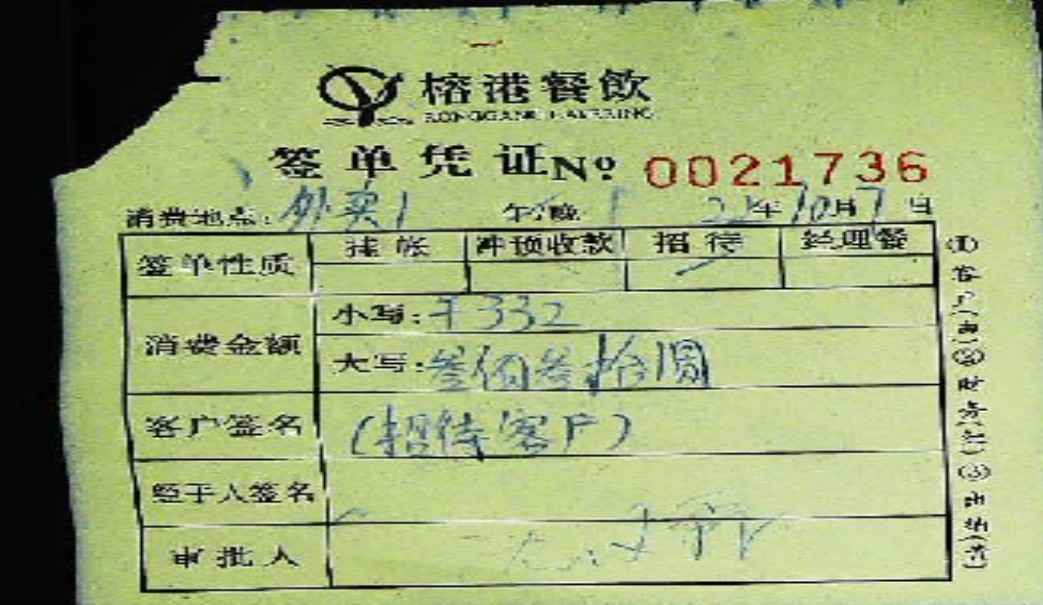 榕港餐飲
RONGGANG CATERING
签单凭证 No 0021736
消费地点：外卖1 午/晚 22年10月7日
签单性质 挂帐 冲预收款 招待 经理餐
消费金额 小写：￥332
大写：叁佰叁拾圆
客户签名 (招待客户)
经手人签名
审批人